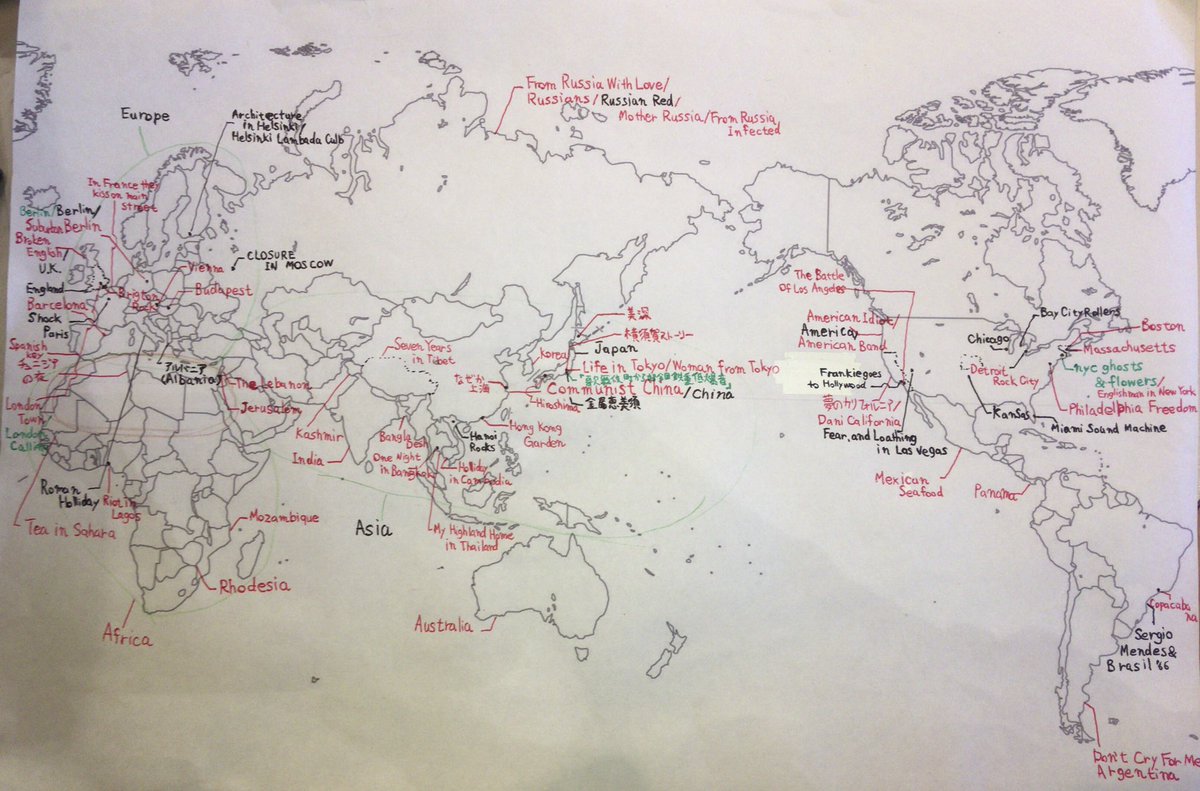 From Russia With Love/
Russians/Russian Red/
Mother Russia/From Russia
Infected
Europe
Architecture
in Helsinki/
Helsinki Lambada Culb
In France they
kiss on main
street
Berlin/Berlin/
Suburban Berlin
Broken
English/
U.K.
England
Barcelona
Shock
Paris
Spanish
Key
チュニジア
の夜
London
Town
London
Calling
CLOSURE
IN MOSCOW
Vienna
Brighton
Rock
Budapest
アルバニア
(Albania)
The Lebanon
Jerusalem
Roman
Holliday
Riot in
Lagos
Tea in Sahara
Mozambique
Rhodesia
Africa
Seven Years
in Tibet
Kashmir
India
Bangla
Desh
One Night
in Bangkok
Asia
なぜか
上海
Korea
美深
横須賀ストーリー
Japan
Life in Tokyo/Woman from Tokyo
Communist China/China
Hiroshima
金属恵美須
Hong Kong
Garden
Hanoi
Rocks
Holiday
in Cambodia
My Highland Home
in Thailand
Australia
The Battle
Of Los Angeles
American Idiot/
America
American Band
Frankie goes
to Hollywood
夢のカリフォルニア/
Dani California
Fear, and Loathing
in Las Vegas
Mexican
Seafood
Panama
Bay City Rollers
Chicago
Detroit
Rock City
Kansas
Boston
Massachusetts
nyc ghosts
& flowers/
Englishman in New York
Philadelphia Freedom
Miami Sound Machine
Copacaba
na
Sergio
Mendes&
Brasil '66
Don't Cry For Me
Argentina